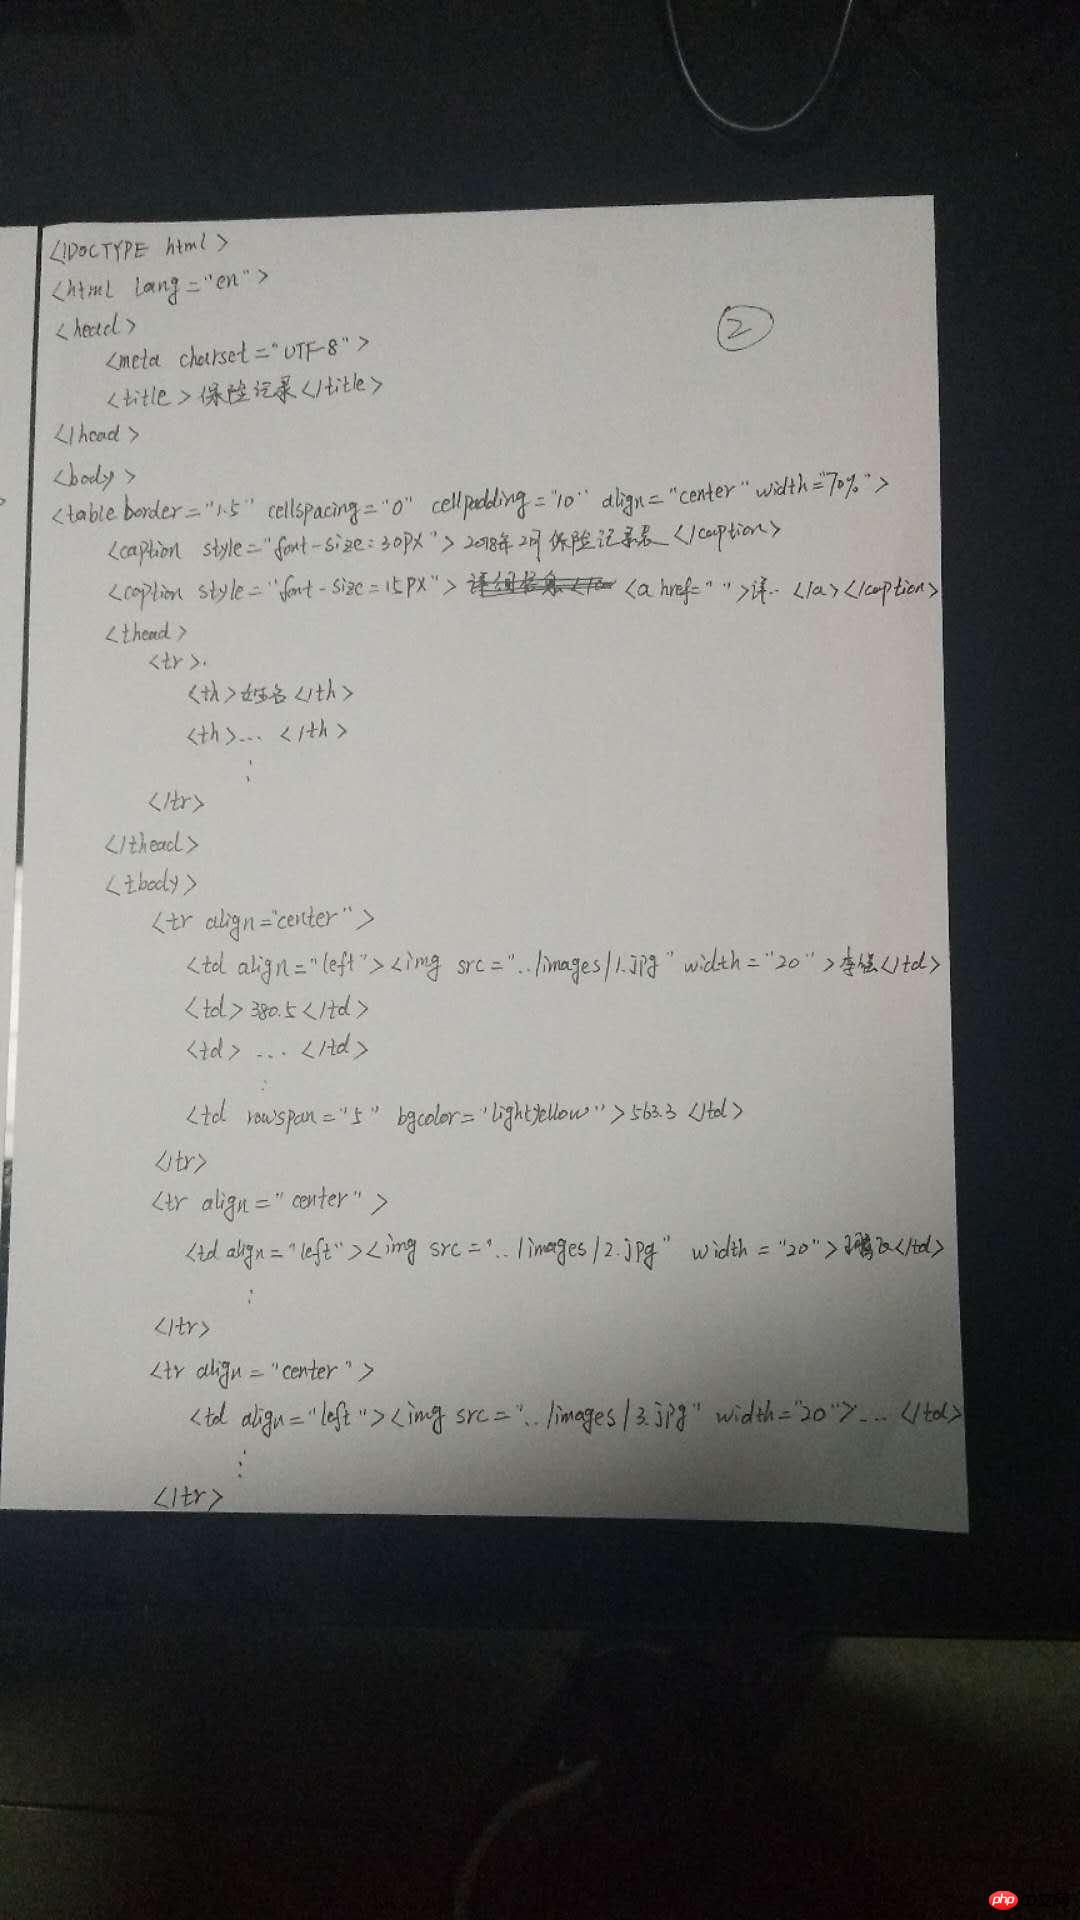 <!DOCTYPE html>
<html lang="en">
<head>
②
<meta charset="UTF-8">
<title>保险记录</title>
</head>
<body>
<table border="1.5" cellspacing="0" cellpadding="10" align="center" width="70%">
<caption style="font-size:30px">2018年2月保险记录表</caption>
<caption style="font-size=15px"> <a href="">详..</a></caption>
<thead>
<tr>.
<th>姓名</th>
<th>...</th>
⋮
</tr>
</thead>
<tbody>
<tr align="center">
<td align="left"><img src="../images/1.jpg" width="20"></td>
<td>380.5</td>
<td>...</td>
⋮
<td rowspan="5" bgcolor="lightyellow">563.3</td>
</tr>
<tr align="center">
<td align="left"><img src="../images/2.jpg" width="20"></td>
⋮
</tr>
<tr align="center">
<td align="left"><img src="../images/3.jpg" width="20">...</td>
⋮
</tr>
php